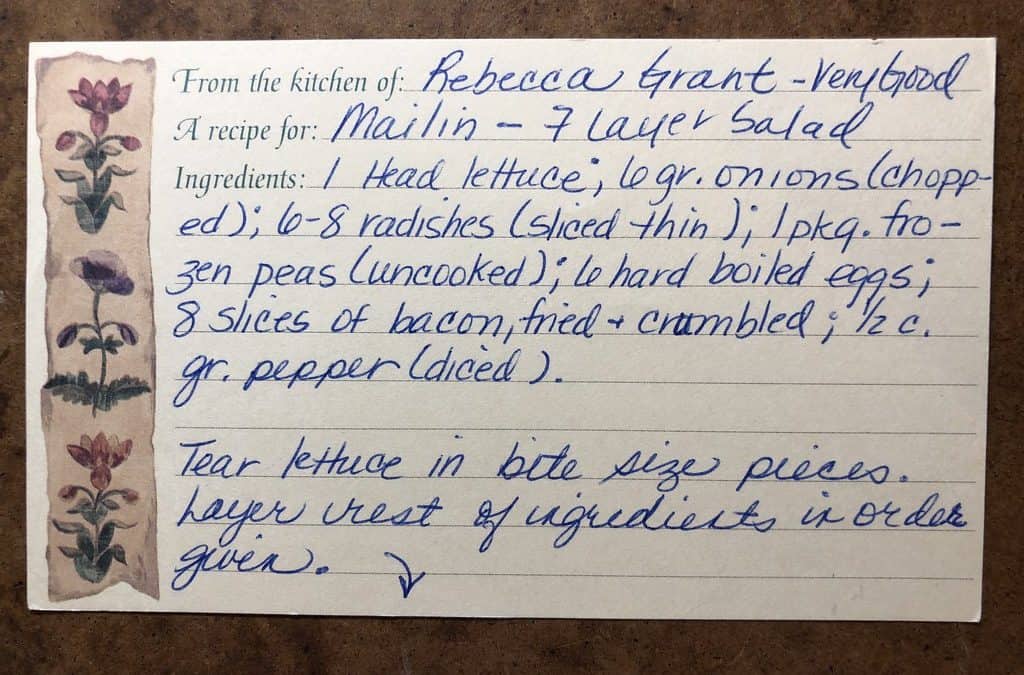 From the kitchen of: Rebecca Grant - Very Good
A recipe for: Mailin - 7 Layer Salad
Ingredients: 1 Head lettuce; 6 gr. onions (chopp-
ed); 6-8 radishes (sliced thin); 1 pkg. fro-
zen peas (uncooked); 6 hard boiled eggs;
8 slices of bacon, fried + crumbled; 1/2 c.
gr. pepper (diced).
Tear lettuce in bite size pieces.
Layer rest of ingredients in order
given. ↓